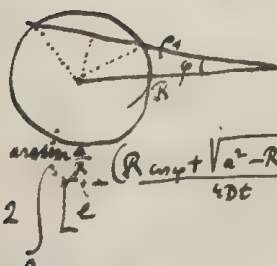 ρ₁
φ
R
arcsin a/R
2 ∫ [e^{-(R cos φ + √(a² - R
4Dt
0